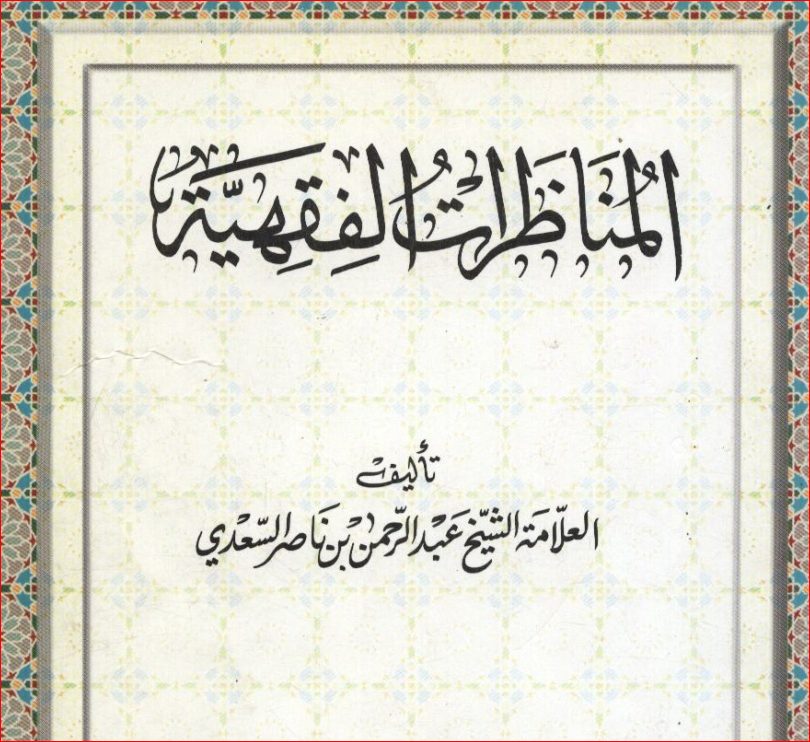 المُنَاظَرَاتُ الفِقهِيَّة
تأليف
العلّامة الشيّخ عَبْد الرّحمن بْن نَاصر السّعْدي